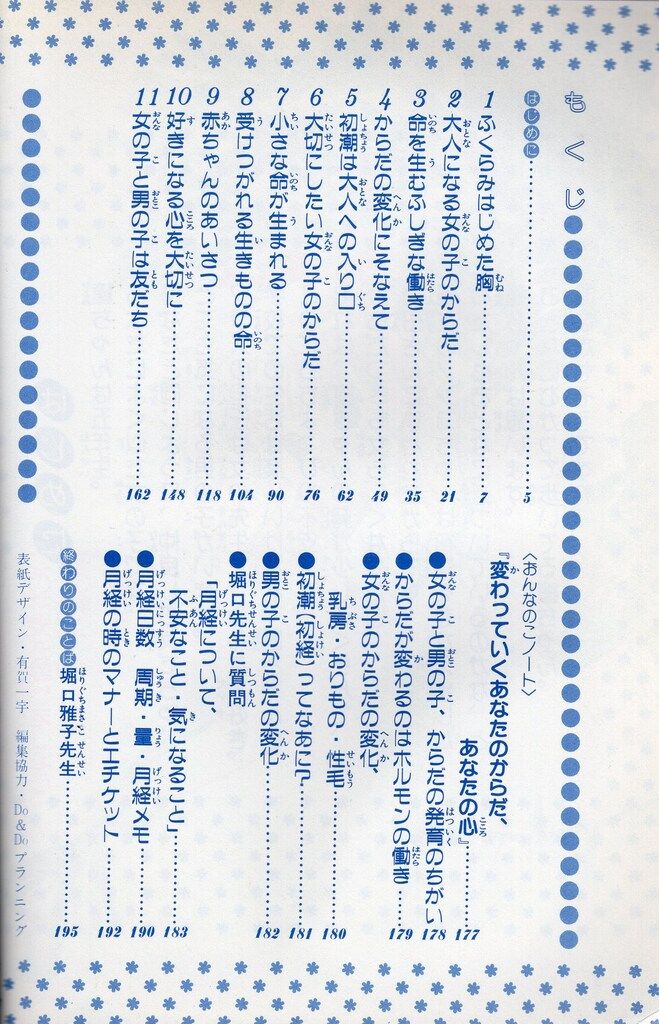 もくじ
はじめに 5
1 ふくらみはじめた胸 7
2 大人になる女の子のからだ 21
3 命を生むふしぎな働き 35
4 からだの変化にそなえて 49
5 初潮は大人への入り口 62
6 大切にしたい女の子のからだ 76
7 小さな命が生まれる 90
8 受けつがれる生きものの命 104
9 赤ちゃんのあいさつ 118
10 好きになる心を大切に 148
11 女の子と男の子は友だち 162
〈おんなのこノート〉
『変わっていくあなたのからだ、
あなたの心』 177
●女の子と男の子、からだの発育のちがい 178
●からだが変わるのはホルモンの働き 179
●女の子のからだの変化、
乳房・おりもの・性毛 180
●初潮(初経)ってなあに? 181
●男の子のからだの変化 182
●堀口先生に質問
「月経について、
不安なこと・気になること」 183
●月経日数 周期・量・月経メモ 190
●月経の時のマナーとエチケット 192
終わりのことば 堀口雅子先生 195
表紙デザイン・有賀一宇 編集協力・Do&Doプランニング